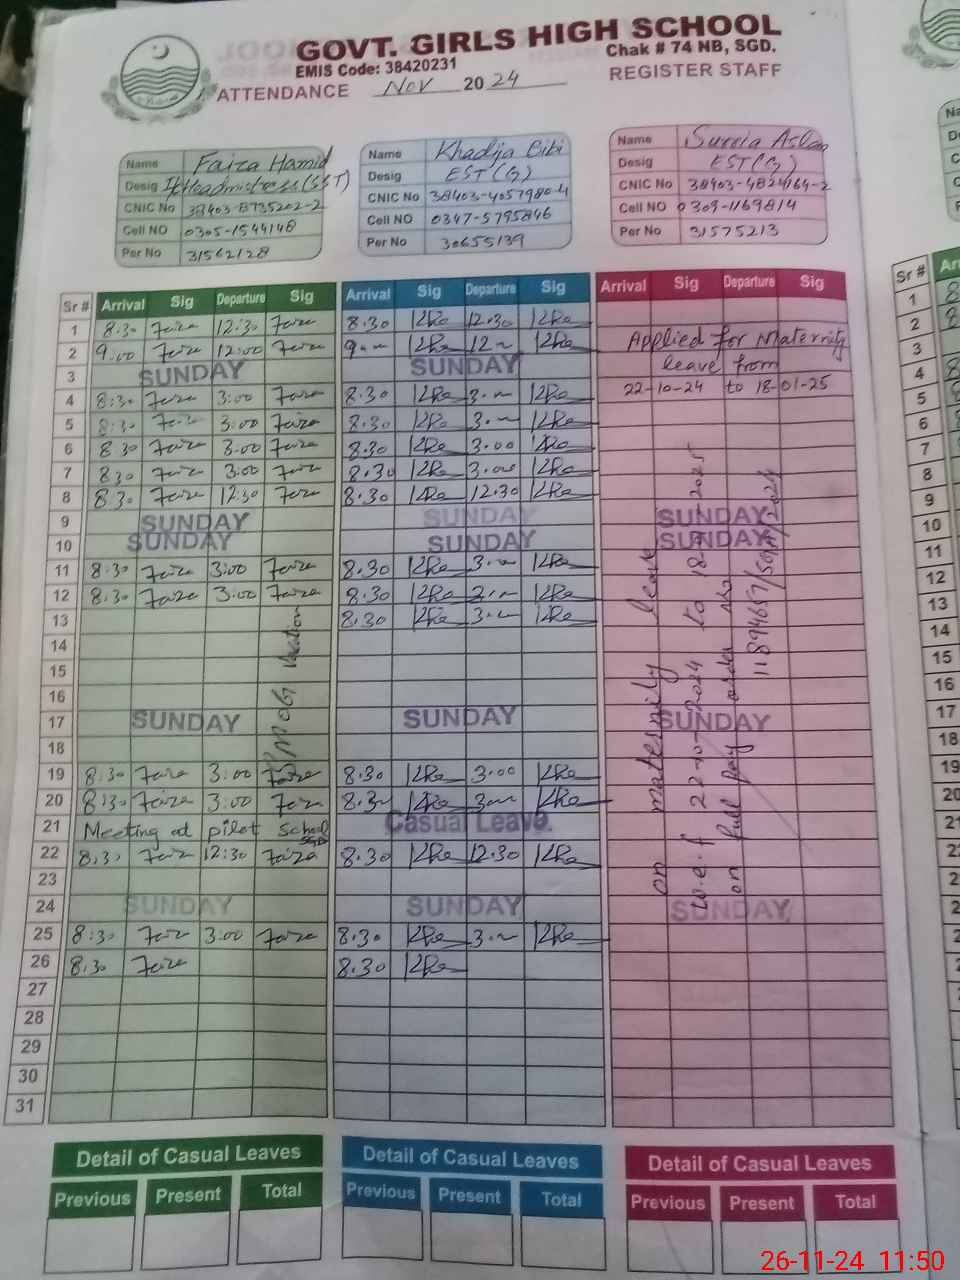 GOVT. GIRLS HIGH SCHOOL
EMIS Code: 38420231 Chak # 74 NB, SGD.
ATTENDANCE Nov 2024 REGISTER STAFF
Name Faiza Hamid
Desig (SST)
CNIC No 38403-8735202-2
Cell NO 0305-1544148
Per No 31562128
Name Khadija Bibi
Desig EST(G)
CNIC No 38403-4057980-4
Cell NO 0347-5795846
Per No 30655139
Name Surria Aslam
Desig EST(G)
CNIC No 38403-4824164-2
Cell NO 0309-1169814
Per No 31575213
Sr # Arrival Sig Departure Sig Arrival Sig Departure Sig Arrival Sig Departure Sig
1 8:30 Faiza 12:30 Faiza 8.30 12.30
2 9:00 Faiza 12:00 Faiza 9 12 Applied for Maternity
3 SUNDAY SUNDAY leave from
4 8:30 Faiza 3:00 Faiza 8.30 3 22-10-24 to 18-01-25
5 8:30 Faiza 3:00 Faiza 8.30 3
6 8 30 Faiza 3:00 Faiza 8.30 3.00
7 8 30 Faiza 3:00 Faiza 8.30 3.00
8 8 30 Faiza 12:30 Faiza 8.30 12.30
9 SUNDAY SUNDAY SUNDAY
10 SUNDAY SUNDAY SUNDAY
11 8:30 Faiza 3:00 Faiza 8.30 3
12 8:30 Faiza 3:00 Faiza 8.30 3
13 8.30 3
14
15
16
17 SUNDAY SUNDAY SUNDAY
18
19 8:30 Faiza 3:00 Faiza 8.30 3.00
20 8:30 Faiza 3:00 Faiza 8.30 3
21 Meeting at pilot School Casual Leave.
22 8:30 Faiza 12:30 Faiza 8.30 12.30
23
24 SUNDAY SUNDAY SUNDAY
25 8:30 Faiza 3:00 Faiza 8.30 3
26 8:30 Faiza 8.30
27
28
29
30
31
on maternity leave
w.e.f 22-10-2024 to 18-1-2025
on full pay order no
Detail of Casual Leaves Detail of Casual Leaves Detail of Casual Leaves
Previous Present Total Previous Present Total Previous Present Total
26-11-24 11:50